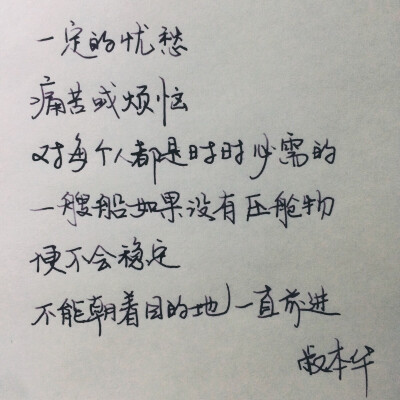 一定的忧愁
痛苦或烦恼
对每个人都是时时必需的
一艘船如果没有压舱物
便不会稳定
不能朝着目的地一直前进
叔本华